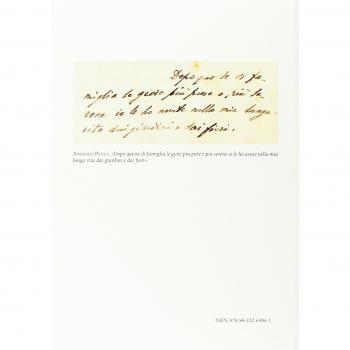 Dopo quelle di fa-
miglia le gioie più pure e più se-
rene io le ho avute nella mia lunga
vita dai giardini e dai fiori.
Angiolo Pucci, «Dopo queste di famiglia le gioie più pure e più serene io le ho avute nella mia
lunga vita dai giardini e dai fiori»
ISBN 978 88 222 6496 1